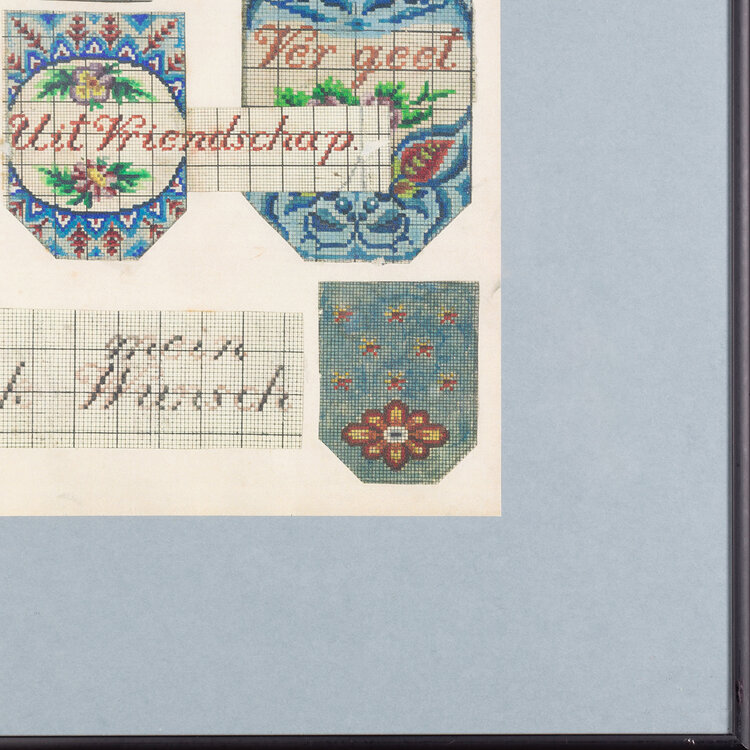 Ver geet.
Uit Vriendschap.
mein
k Wunsch